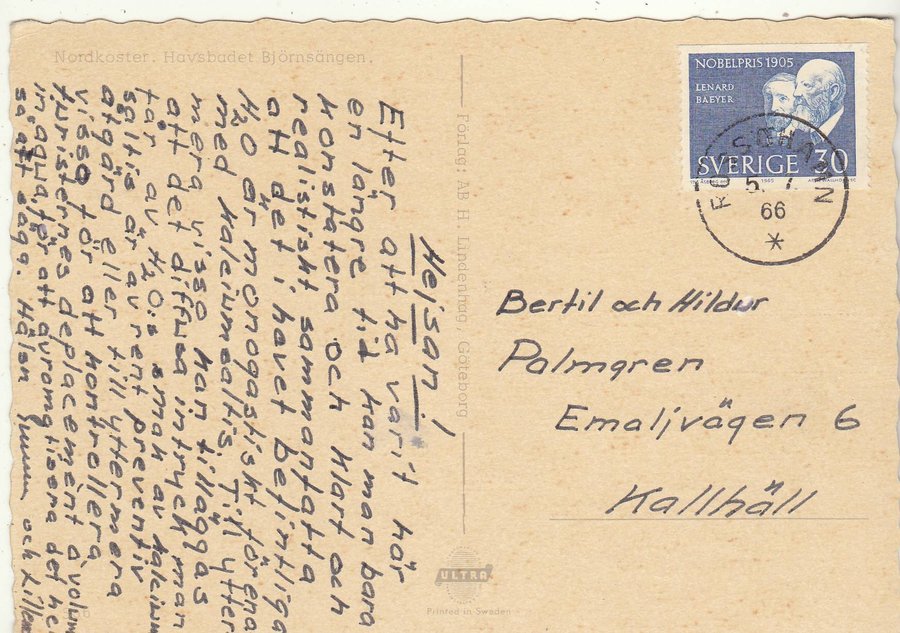 Nordkoster. Havsbadet Björnsängen.
Hejsan!
Efter att ha varit här
en längre tid kan man bara
konstatera och klart och
realistiskt sammanfatta
att det i havet befintliga
H2O är monogastiskt förena
med kalciumsaltis. Till ytter
mera visso kan tilläggas
att det diffusa intryck man
får av H2O:s smak av kalcium
saltis är av rent preventiv
åtgärd eller till yttermera
visso för att kontrollera
turisternas deplacement å volum
in aqua, för att avromgtisera det he
så att säg. Hälsn och Lillem
Förlag: AB H. Lindenhag, Göteborg
ULTRA
Printed in Sweden
NOBELPRIS 1905
LENARD
BAEYER
SVERIGE 30
1965
5. 7.
66
Bertil och Hildur
Palmgren
Emaljvägen 6
Kallhäll